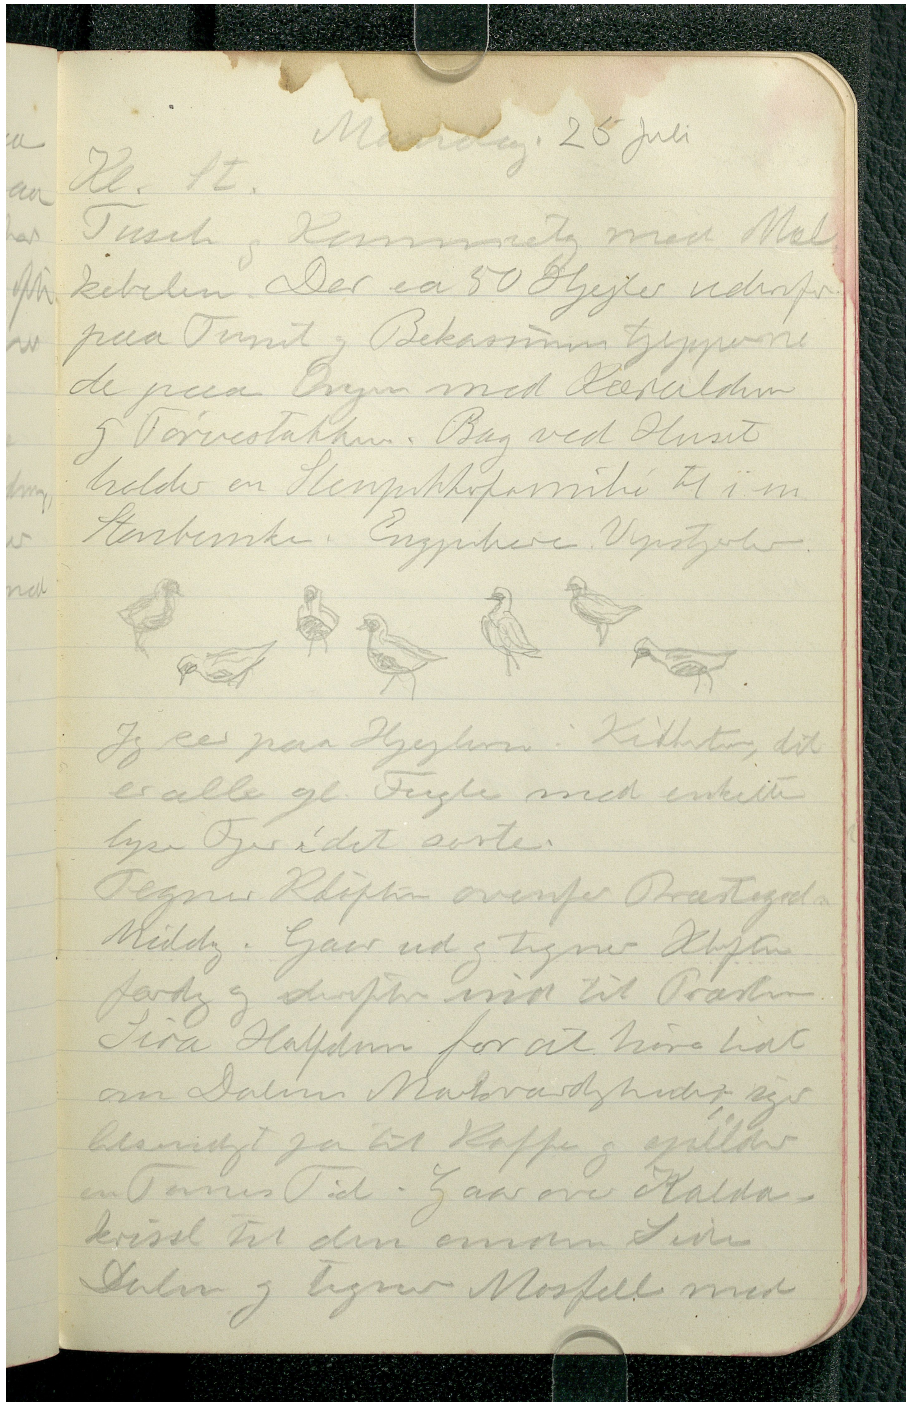 Mandag. 25 Juli
Kl. St.
Tusch og med Mal
kebelen. Der ca 50 Hjejler udenfor
paa Tunet og Bekassinen
de paa Engen med
og Tørvestakken. Bag ved Huset
holder en Stenpikkerfamilie til i en
Stenbunke. Engpibere. Vipstjerter.
Jeg ser paa Hjejlerne i Kikkerten, det
er alle gl. Fugle med enkelte
lyse Fjer i det sorte.
Tegner Kløften ovenfor Præstegd.
Middg. Gaar ud og tegner Kløften
færdig og derefter ind til Præsten
Sira Halfdan for at høre lidt
om Dalens Mærkværdigheder, siger
ja til Kaffe og
en Times Tid. Gaar over Kalda-
kvisl til den anden Side
Dalen og tegner Mosfell med